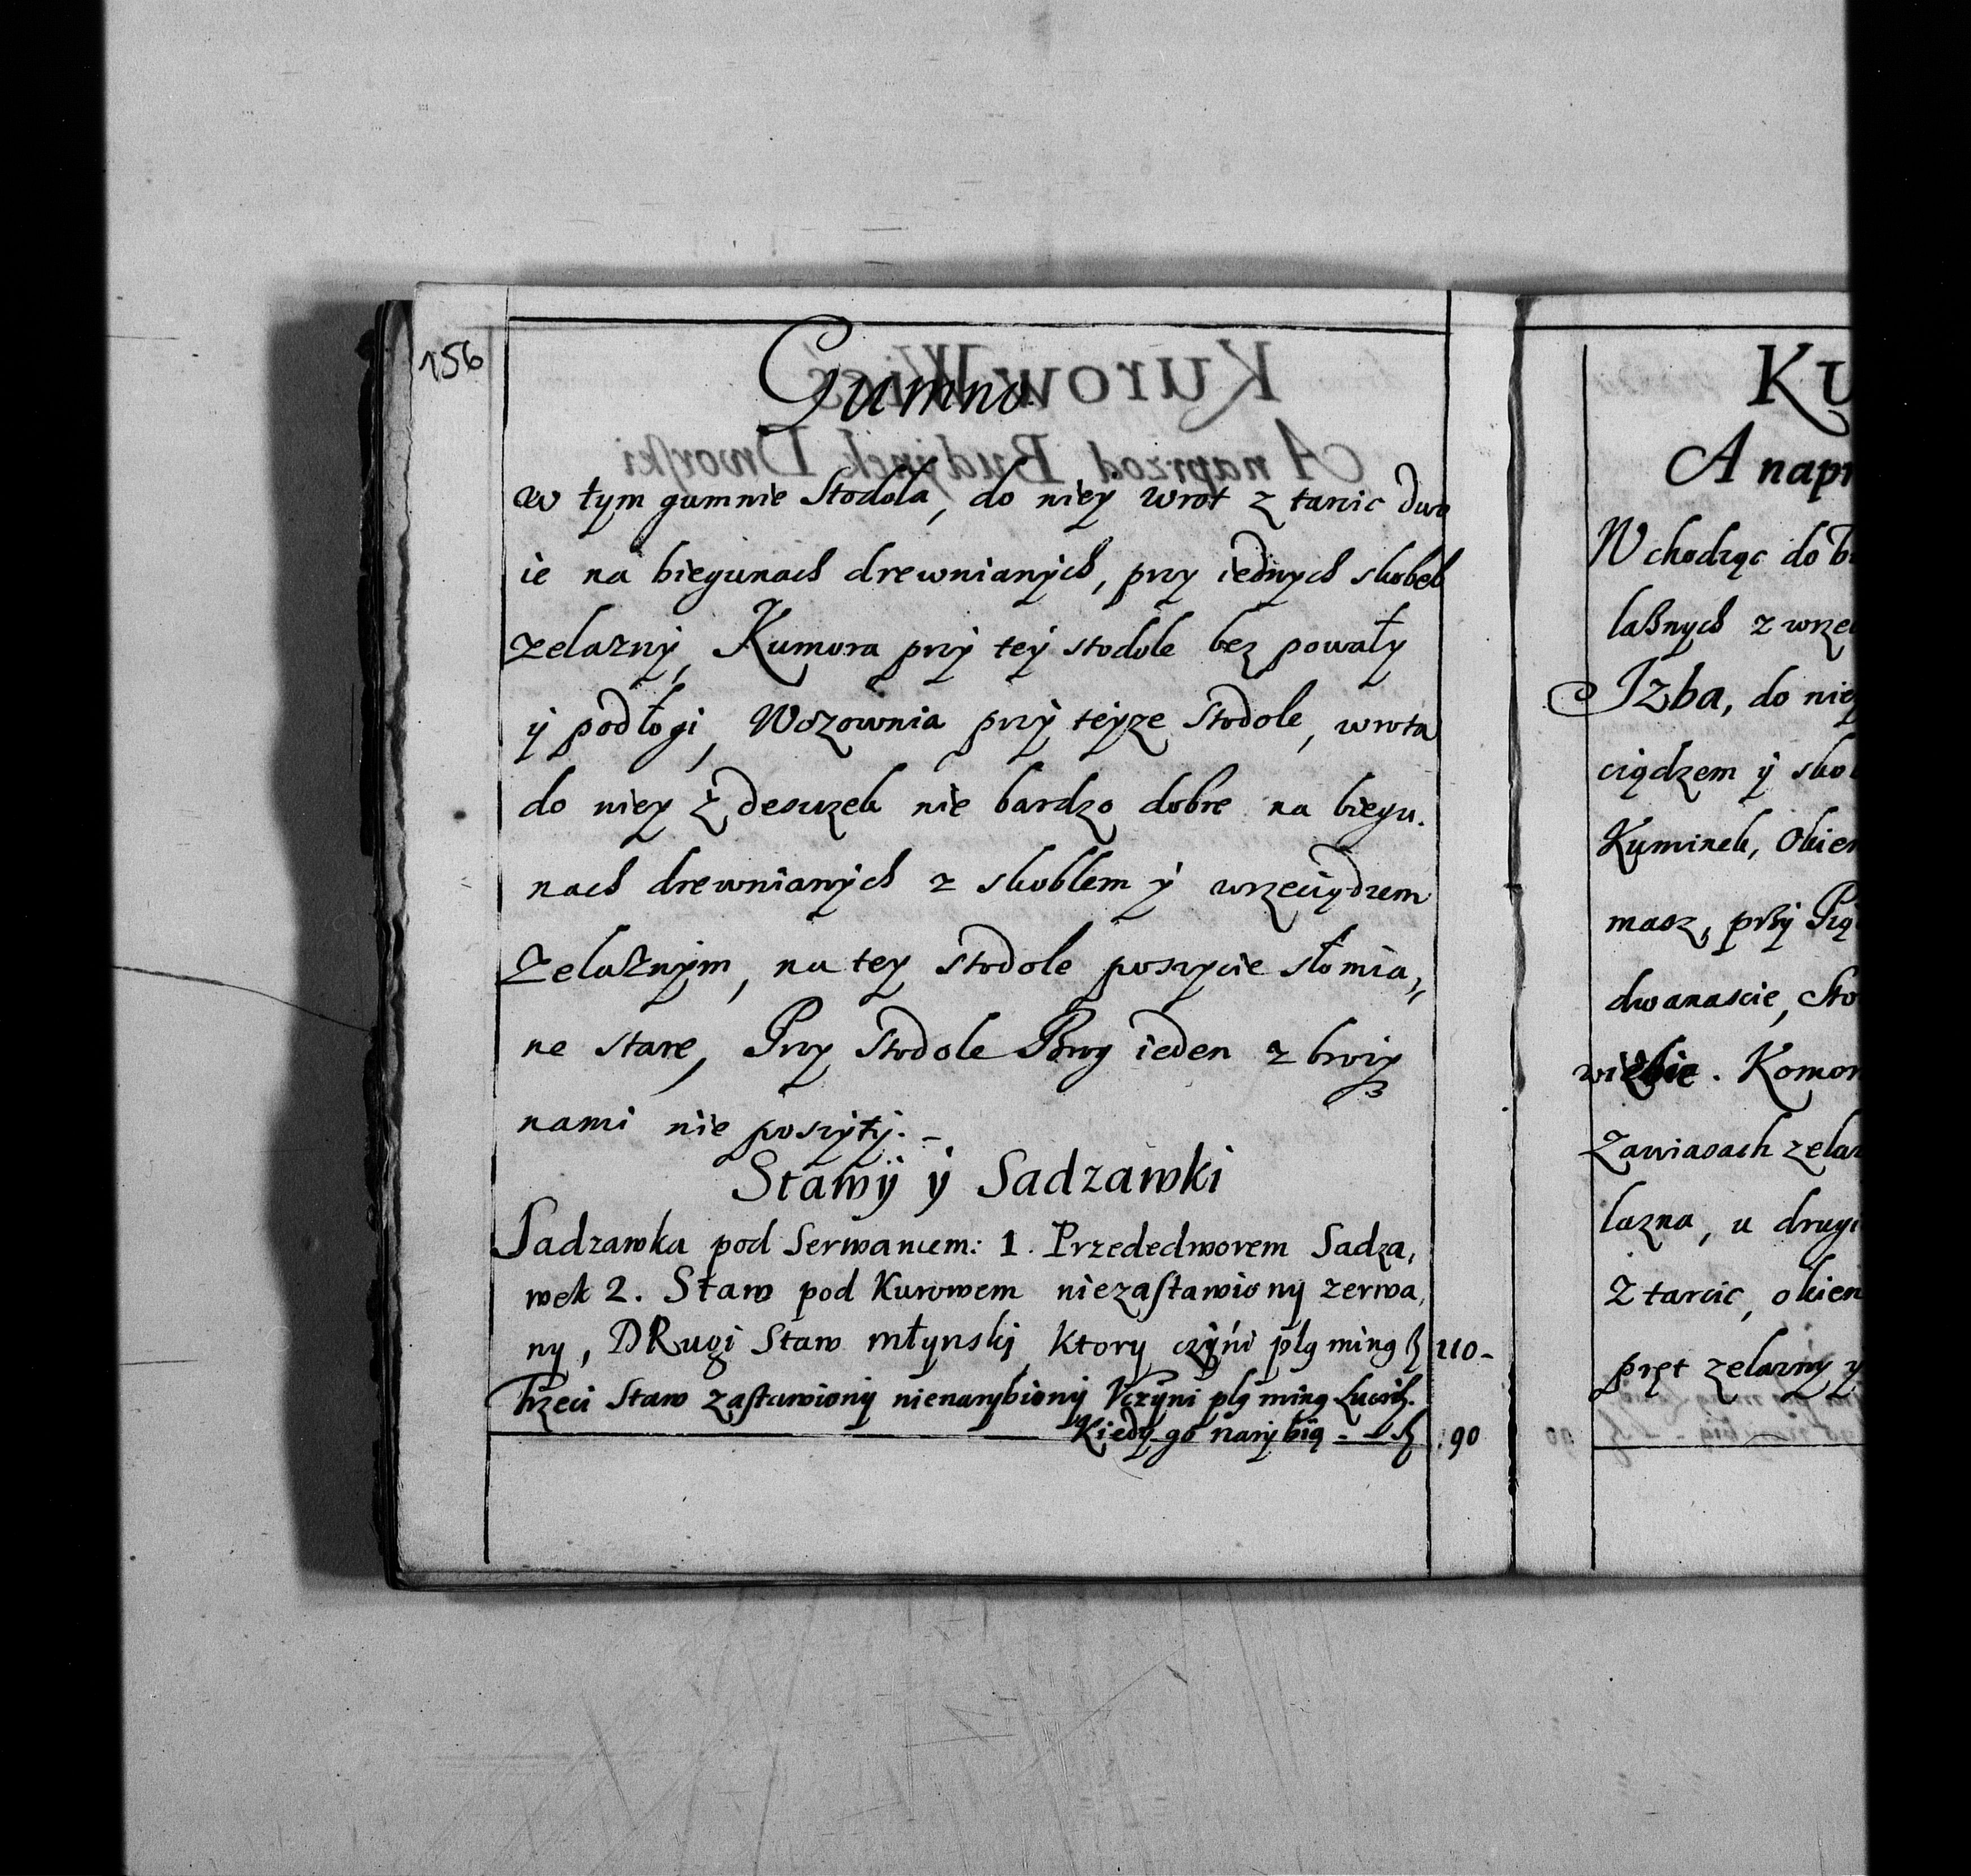 156
Gumno
w tym gumnie Stodoła, do niey wrot z tarcic dwo
ie na biegunach drewnianych, przy iednych skobel
zelazny, Kumora przy tey stodole bez powały
y podłogi, Wozownia przy teyze Stodole, wrota
do niey z deszczek nie bardzo dobre na biegu.
nach drewnianych z skoblem y wrzeciądzem
zelaznym, na tey stodole poszycie słomia,,
ne stare, Przy Stodole Brog ieden z
nami nie poszyty. –
Stawÿ ÿ Sadzawki
Sadzawka pod 1. Przededworem Sadza,
wek 2. Staw pod Kurowem niezastawiony zerwa,
ny, DRugi Staw młynski, Ktory czÿni plg ming 110-
Trzeci Staw zastawiony nienarybiony Vczÿni plg ming
Kiedy go narybią - 90
Ku
A napr
Wchodząc do b
laßnych z wrze
Izba, do niey
ciądzem ÿ skob
Kuminek, Okien
masz, przy Pią
dwanascie, Sto
w izbie. Komor
Zawiasach zelaz
lazna, u drugi
Z tarcic, okien
pręt zelazny y